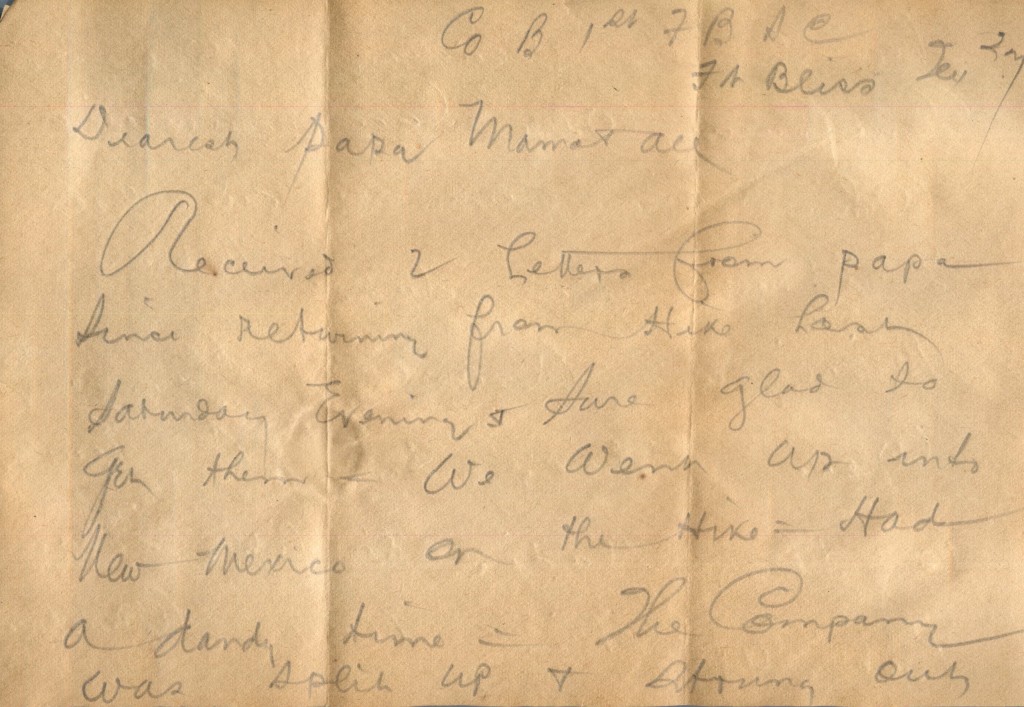 Co B 1st F B S C
Ft Bliss Tex
Dearest Papa Mama & all
Received 2 Letters from papa
Since returning from Hike Last
Saturday Evening & Sure glad to
Get them = We Went up into
New Mexico on the Hike = Had
a dandy time = The Company
was split up & strung out